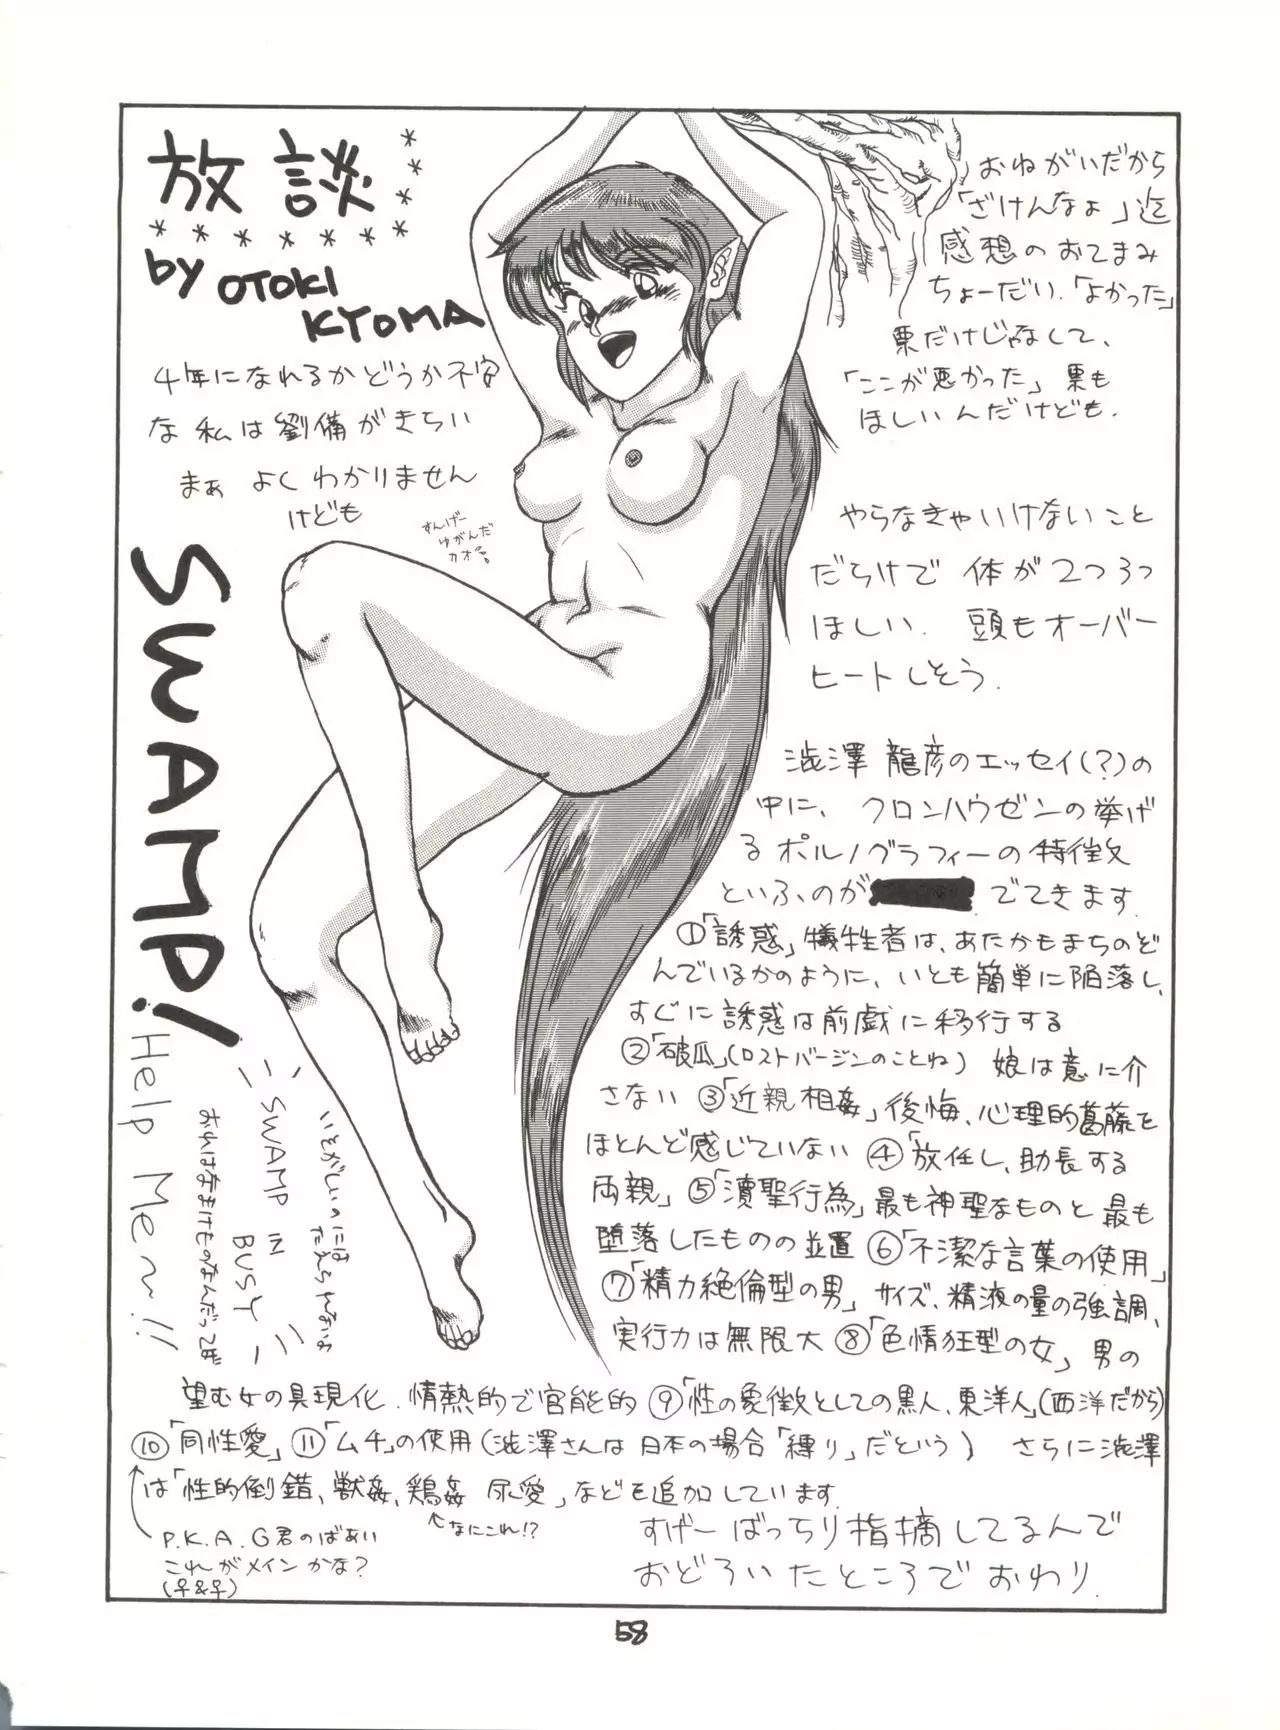 放談
by OTOKI
KYOMA
4年になれるかどうか不安
な私は劉備がきらい
まぁ よくわかりません
けども
すんげー
ゆがんだ
カオ
SWAMP!
Help Me~!!
SWAMP
IN
BUSY
いそがしいのには
たえられないよ
おれはなまけものなんだってば
おねがいだから
「ざけんなよ」迄
感想のおてまみ
ちょーだい.「よかった」
票だけじゃなして、
「ここが悪かった」票も
ほしいんだけども.
やらなきゃいけないこと
だらけで 体が2つ3つ
ほしい. 頭もオーバー
ヒートしそう.
澁澤 龍彦のエッセイ(?)の
中に、クロンハウゼンの挙げ
るポルノグラフィーの特徴
といふのが でてきます.
①「誘惑」犠牲者は、あたかもまちのぞ
んでいるかのように、いとも簡単に陥落し、
すぐに誘惑は前戯に移行する
②「破瓜」(ロストバージンのことね) 娘は意に介
さない ③「近親相姦」後悔、心理的葛藤を
ほとんど感じていない ④「放任し、助長する
両親」⑤「瀆聖行為」最も神聖なものと最も
堕落したものの並置 ⑥「不潔な言葉の使用」
⑦「精力絶倫型の男」サイズ、精液の量の強調、
実行力は無限大 ⑧「色情狂型の女」男の
望む女の具現化.情熱的で官能的 ⑨「性の象徴としての黒人、東洋人」(西洋だから)
⑩「同性愛」⑪「ムチ」の使用(澁澤さんは日本の場合「縛り」だという) さらに澁澤
は「性的倒錯、獣姦、鶏姦 尿愛」などを追加しています.
なにこれ!?
P.K.A.G君のばあい
これがメインかな?
(♀&♀)
すげーばっちり指摘してるんで
おどろいたところでおわり.
58